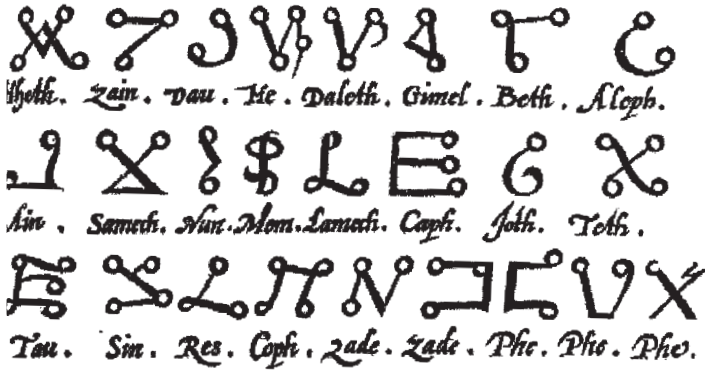 Zain . Vau . He . Daleth . Gimel . Beth . Aleph.
Ain . Samech. Nun. Mem. Lamech. Caph. Joth. Teth .
Tau . Sin . Res . Coph . Zade . Zade . Phe . Phe . Phe.